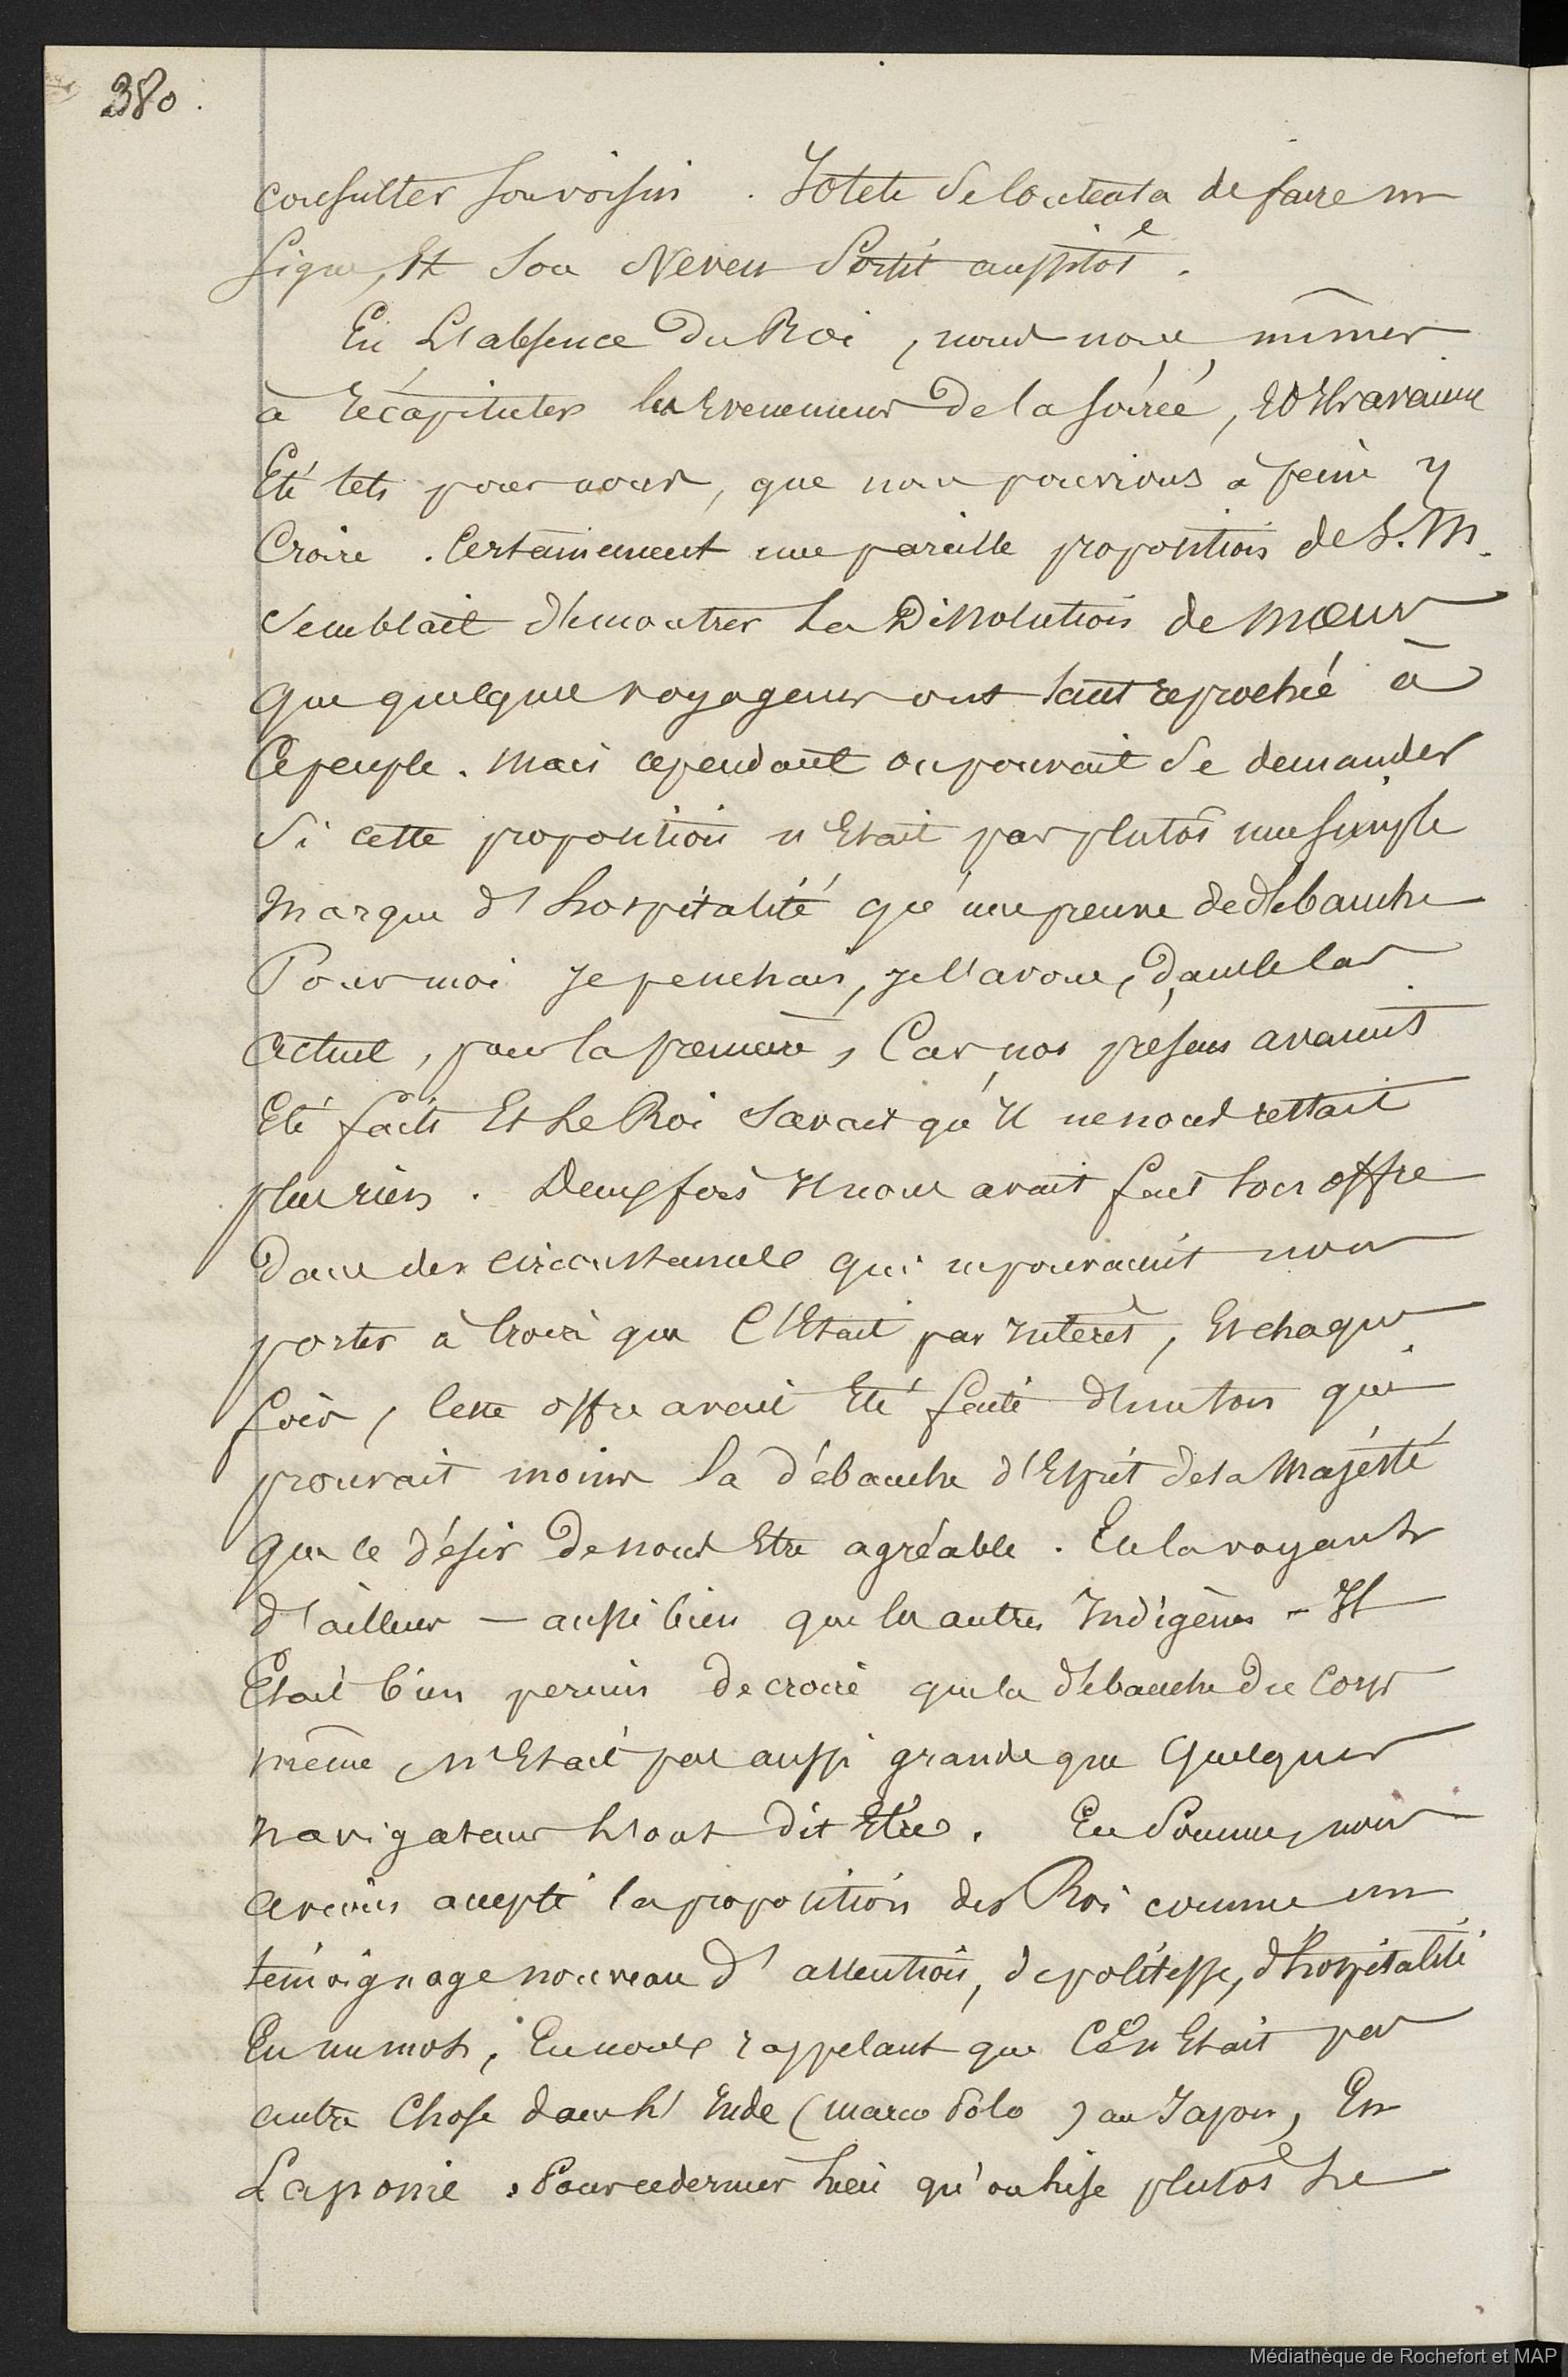 380.
consulter son voisin. Totete se contenta de faire un
signe, Et son Neveu Sortit aussitôt.
En L'absence Du Roi, nous nous mîmes
à récapituler les Evenements De la soirée, Et Ils avaient
Eté tels pour nous, que nous pouvions à peine y
Croire. Certainement une pareille proposition de S. M.
Semblait démontrer La Dissolution de Mœurs
que quelques voyageurs ont tant reproché à
Ce peuple. Mais cependant on pouvait Se demander
Si cette proposition n'Etait pas plutôt une simple
Marque d'hospitalité qu'une preuve de débauche
Pour moi je penchais, je l'avoue, dans le cas
actuel, pour la première, Car nos présens avaient
Eté faits Et Le Roi Savait qu'Il ne nous restait
plus rien. Deux fois Il nous avait fait son offre
Dans des circonstances qui ne pouvaient nous
porter à Croire que C'Etait par Intérêt, Et chaque
fois, Cette offre avait Eté faite d'un ton qui
prouvait moins la débauche d'Esprit de sa Majesté
que le désir De nous Etre agréable. En la voyant
d'ailleurs — aussi bien que les autres Indigènes — Il
Etait bien permis De croire que la débauche Du Corps
même, N'Etait pas aussi grande que Quelques
navigateurs L'ont Dit Etre. En Somme, nous
avions accepté la proposition du Roi comme un
témoignage nouveau D'attention, de politesse, d'hospitalité
En un mot, En nous rappelant que Ce n'Etait pas
autre Chose dans L'Inde (Marco Polo) au Japon, En
Laponie. Pour ce dernier Lieu qu'on lise plutôt Le
Médiathèque de Rochefort et MAP